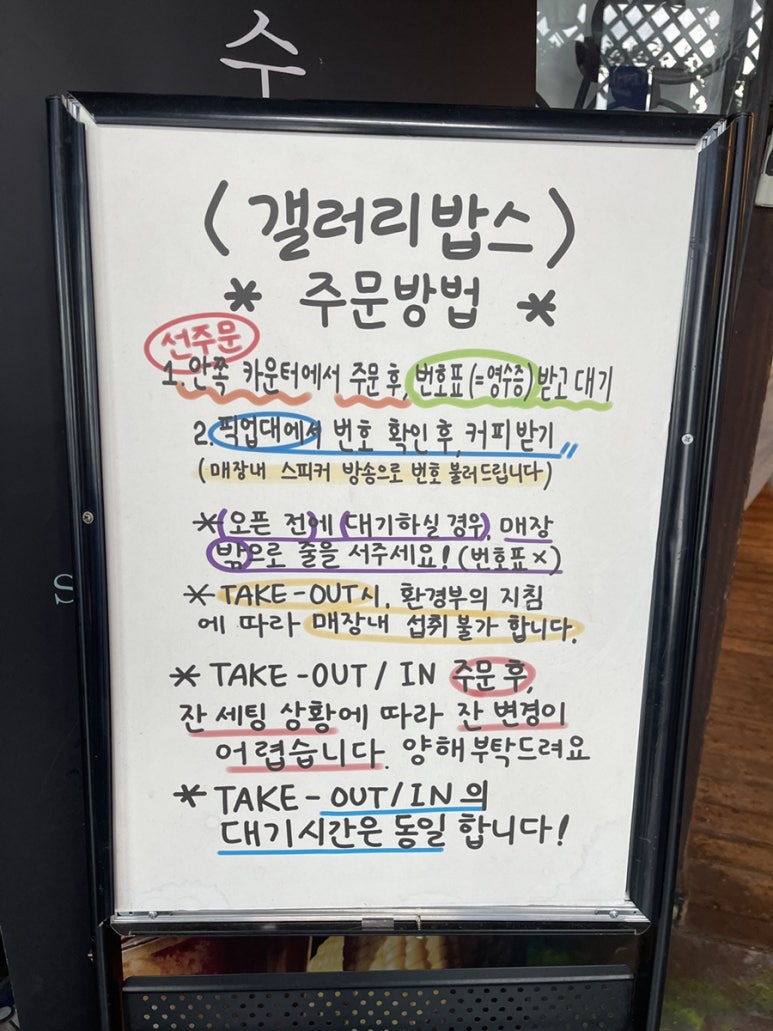 수
<갤러리밥스>
* 주문방법 *
선주문
1. 안쪽 카운터에서 주문 후, 번호표(=영수증) 받고 대기
2. 픽업대에서 번호 확인 후, 커피 받기
(매장내 스피커 방송으로 번호 불러드립니다)
* (오픈 전)에 (대기하실 경우), 매장
밖으로 줄을 서주세요! (번호표×)
* TAKE-OUT시, 환경부의 지침
에 따라 매장내 섭취 불가 합니다.
* TAKE-OUT / IN 주문 후,
잔 세팅 상황에 따라 잔 변경이
어렵습니다. 양해부탁드려요
* TAKE-OUT/IN의
대기시간은 동일 합니다!
S